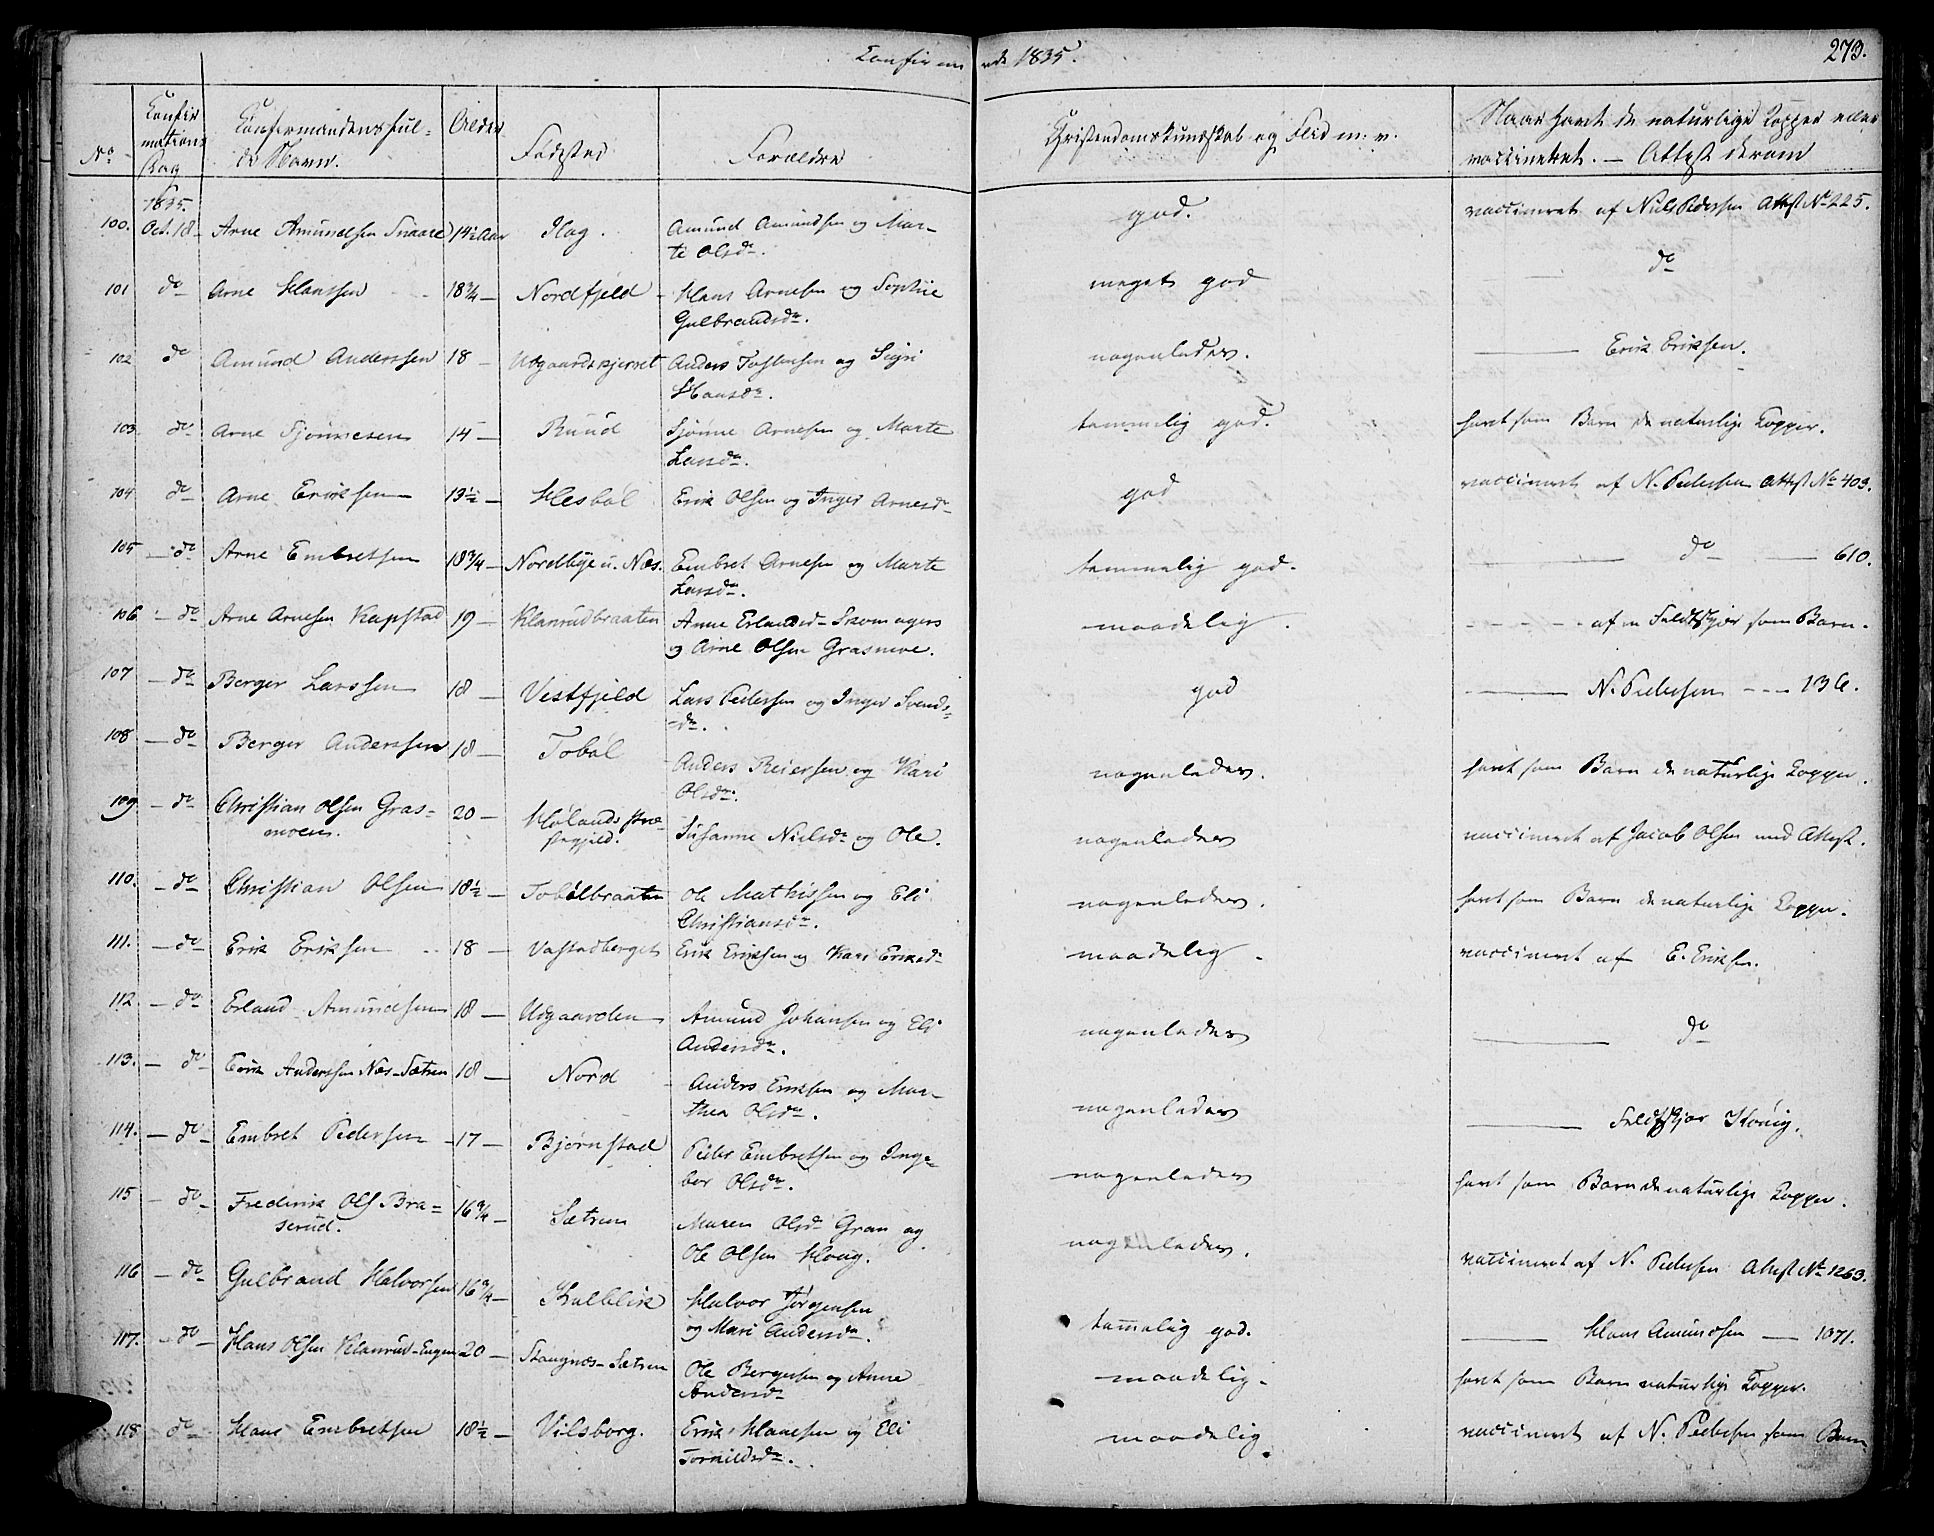 Confirmerede 1835.
273.
No
Confirmations Dag
Confirmandens fulde Navn.
Alder
Fødested
Forældre
Christendomskundskab og Flid m: v.
Naar havt de naturlige Kopper eller vaccineret. — Attest derom
1835.
100. Oct. 18 Arne Amundsen Snaare 14½ Aar Hag. Amund Amundsen og Marte Olsdr. god. vaccineret af Niels Pedersen Attest No 225.
101 do Arne Hanssen 18¾ — Nordfjeld Hans Arnesen og Sophie Gulbrandsdr. meget god — do
102 do Amund Anderssen 18 — Udgaardskjernet Anders Tostensen og Sigri Hansdr. nogenledes. — Erik Eriksen.
103 do Arne Sjønnesen 14 — Ruud Sjønne Arnesen og Marte Larsdr. temmelig god. havt som Barn de naturlige Kopper.
104 do Arne Eriksen 13½ — Hesbøl Erik Olsen og Inger Arnesdr god vaccineret af N. Pedersen Attest No 403.
105 — do Arne Embretsen 18¾ — Nordbye u. Næs. Embret Arnesen og Marte Larsdr. temmelig god. — do — 610.
106 — do Arne Arnesen Kapstad 19 — Klanrudbraaten Anne Erlandsd. Skomagers og Arne Olsen Grasmoe. maadelig. — af en Feldtskjær som Barn.
107 — do Berger Larssen 18 — Vestfjeld Lars Pedersen og Inger Svendsdr. god — N. Pedersen — 136.
108 — do Berger Anderssen 18 — Tobøl Anders Reiersen og Kari Olsdr. nogenledes. havt som Barn de naturlige Kopper.
109 — do Christian Olsen Grasmoen. 20 — Hølands Præstegjeld. Susanne Nielsdr og Ole. nogenledes vaccineret af Jacob Olsen med Attest.
110. — do Christian Olsen 18½ — Tobølbraaten Ole Mathissen og Eli Christiansdr. nogenledes. havt som Barn de naturlige Kopper.
111. — do Erik Eriksen 18 — Vastadberget Erik Eriksen og Kari Eriksdr maadelig. vaccineret af E. Eriksen.
112. — do Erland Amundsen 18 — Udgaarden Amund Johansen og Eli Andersdr. nogenledes — do
113. — do Erik Anderssen Næs-Sætren 18 — Nord Anders Eriksen og Marthea Olsdr. nogenledes — Feldtskjær König.
114. — do Embret Pedersen 17 — Bjørnstad Peder Embretsen og Ingebor Olsdr. nogenledes havt som Barn de naturlige Kopper.
115 — do Frederik Ols Braserud. 16¾ — Sætren Maren Olsdr Gran og Ole Olsen Haug. nogenledes. vaccineret af N. Pedersen Attest No 1263.
116 — do Gulbrand Halvorsen 16¾ — Kulblik Halvor Jørgensen og Mari Andersdr. temmelig god. — Hans Amundsen — 1071.
117. — do Hans Olsen Klanrud-Engen 20 — Stangnæs-Sætren Ole Bergersen og Anne Andersdr maadelig. havt som Barn naturlige Kopper.
118 — do Hans Embretsen 18½ — Vilsborg. Erik Hansen og Eli Tornildsdr. maadelig. vaccineret af N. Pedersen som Barn